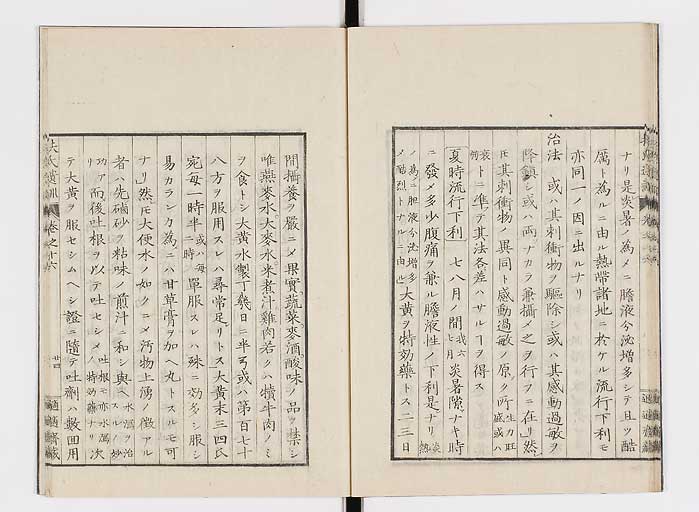 ナリ是炎暑ノ為メニ膽液分泌増多シテ且ツ酷
厲ト為ルニ由ル熱帶諸地ニ於ケル流行下利モ
亦同一ノ因ニ出ルナリ
治法 或ハ其刺衝物ヲ驅除シ或ハ其感動過敏ヲ
降鎮シ或ハ兩ナカラ兼攝メ之ヲ行フニ在リ然
𪜈其刺衝物ノ異同ト感動過敏ノ原ク所生力旺盛或ハ
衰弱トニ準テ其法各差ハサルヿヲ得ス
夏時流行下利 七八月ノ間我六七月炎暑隙ナキ時
ニ發メ多少腹痛ヲ兼ル膽液性ノ下利是ナリ炎熱
ノ為ニ胆液分泌増多ノ酷烈トナルニ由ル大黄ヲ特効藥トス二三日
間攝養ヲ嚴ニメ果實蔬菜麥酒酸味ノ品ヲ禁シ
唯燕麥水大麥水米煮汁雞肉若クハ犢牛肉ノミ
ヲ食トシ大黄水製丁幾日ニ半弓或ハ第百七十
八方ヲ服用スレハ尋常足リトス大黄末三四氏
宛毎一時半或ハ毎二時ニ單服スレハ殊ニ効多シ服シ
易カランカ為ニハ甘草膏ヲ加ヘ丸トスルモ可
ナリ然𪜈大便水ノ如クニメ汚物上湧ノ徴アル
者ハ先磠砂ヲ粘味ノ煎汁ニ和シ與ヘ水瀉ヲ治スルノ妙
功アリ而後吐根ヲ以テ吐セシメ吐根モ亦水瀉ノ特効藥ナリ次
テ大黄ヲ服セシムヘシ證ニ隨テ吐劑ハ數回用
扶氏遺訓 卷之十六
廿四
適適齋藏